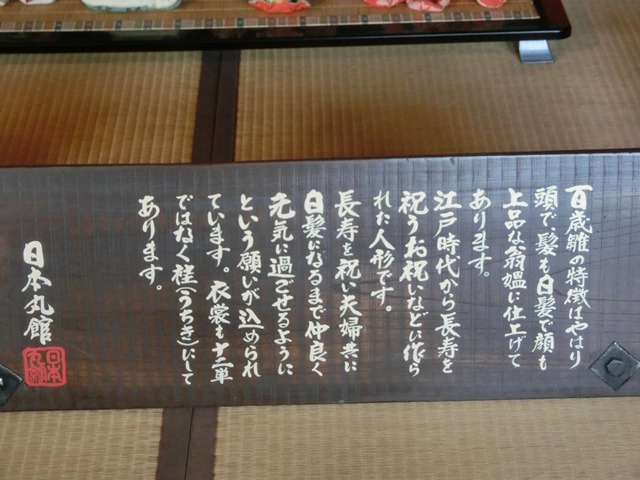 百歳雛の特徴はやはり
頭で、髪も白髪で顔も
上品な翁媼に仕上げて
あります。
江戸時代から長寿を
祝うお祝いなどに作ら
れた人形です。
長寿を祝い夫婦共に
白髪になるまで仲良く
元気に過ごせるように
という願いが込められ
ています。衣裳も十二単
ではなく袿(うちき)にして
あります。
日本丸館
日本丸館